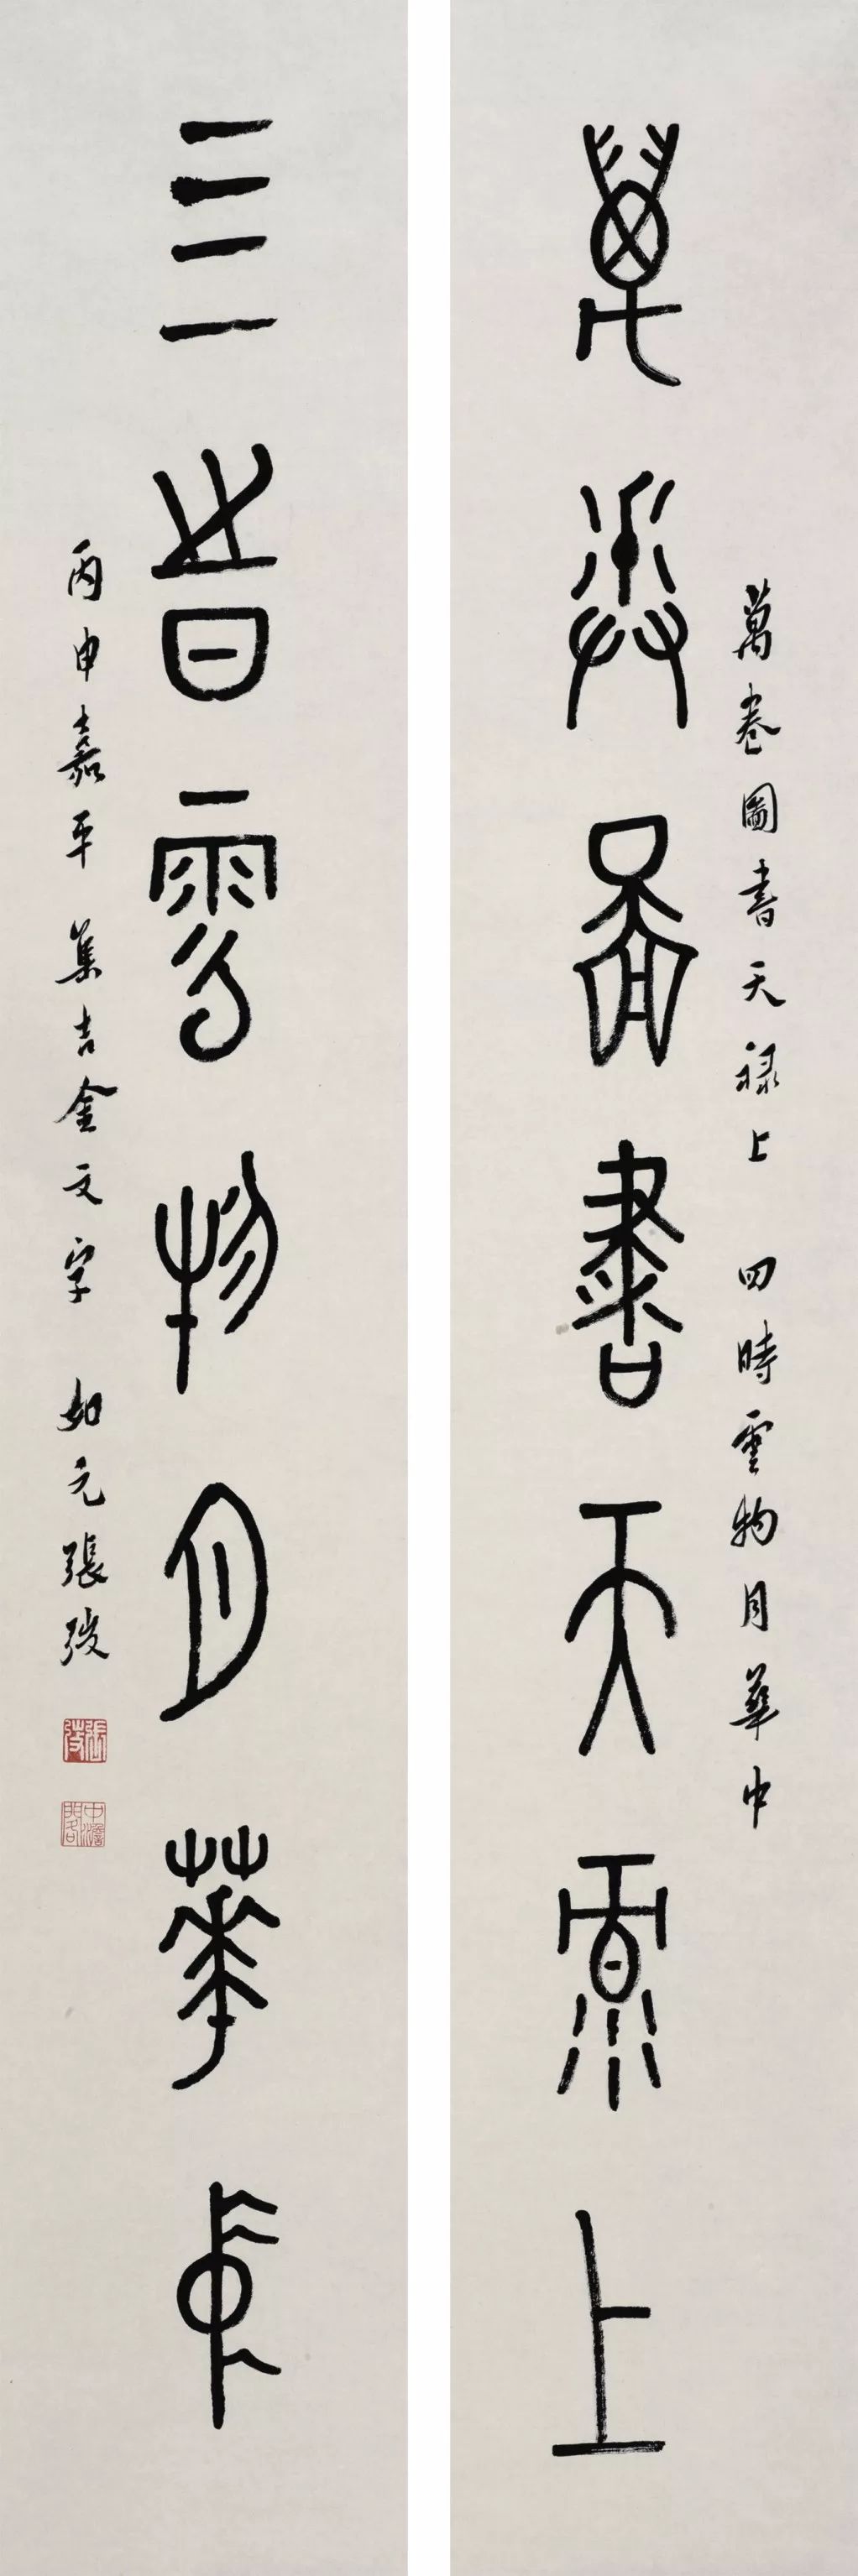 萬卷圖書天祿上
萬卷圖書天祿上 四時雲物月華中
四時雲物月華中
丙申嘉平 集吉金文字 如元張